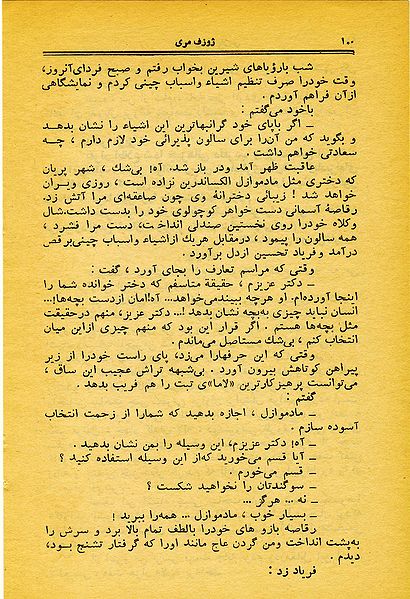 ۱۰۰ ژوزف مری
شب بارؤیاهای شیرین بخواب رفتم و صبح فردای‌آنروز،
وقت خودرا صرف تنظیم اشیاء واسباب چینی کردم و نمایشگاهی
ازآن فراهم آوردم .
باخود می‌گفتم :
ـ اگر باپای خود گرانبهاترین این اشیاء را نشان بدهد
و بگوید که من آن‌را برای سالون پذیرائی خود لازم دارم ، چـه
سعادتی خواهم داشت .
عاقبت ظهر آمد ودر باز شد. آه! بی‌شك ، شهر پریان
که دختری مثل مادموازل الکساندرین نزاده است ، روزی ویـران
خواهد شد ! زیبائی دخترانهٔ وی چون صاعقه‌ای مرا آتش زد.
رقاصهٔ آسمانی دست خواهر کوچولوی خود را بدست داشت.شال
وکلاه خودرا روی نخستین صندلی انداخت، دست مرا فشرد ،
همه سالون را پیمود ، درمقابل هریك ازاشیاء واسباب چینی‌برقص
درآمد وفریاد تحسین ازدل برآورد .
وقتی که مراسم تعارف را بجای آورد ، گفت :
ـ دکتر عزیزم ، حقیقة متاسفم که دختر خوانده شما را
اینجا آورده‌ام. او هرچه ببیندمی‌خواهد... آه!امان ازدست بچه‌ها!...
انسان نباید چیزی به‌بچه نشان بدهد !... دکتر عزیز، منهم درحقیقت
مثل بچه‌ها هستم . اگر قرار این بود که منهم چیزی ازاین میان
انتخاب کنم ، بی‌شك مستاصل می‌ماندم .
وقتی که این حرفهارا می‌زد، پای راست خودرا از زیر
پیراهن کوتاهش بیرون آورد . بی‌شبهه تراش عجیب این ساق ،
می‌توانست پرهیزکارترین «لاما»ی تبت را هم فریب بدهد .
گفتم :
ـ مادموازل ، اجازه بدهید که شمارا از زحمت انتخاب
آسوده سازم .
ـ آه! دکتر عزیزم، این وسیله را بمن نشان بدهید .
ـ آیا قسم می‌خورید که‌از این وسیله استفاده کنید ؟
ـ قسم می‌خورم .
ـ سوگندتان را نخواهید شکست ؟
ـ نه ... هرگز ...
ـ بسیار خوب ، مادموازل ... همه‌را ببرید !
رقاصه بازو های خودرا بالطف تمام بالا برد و سرش را
به‌پشت انداخت ومن گردن عاج مانند اورا که گرفتار تشنج بـود،
دیدم .
فریاد زد :